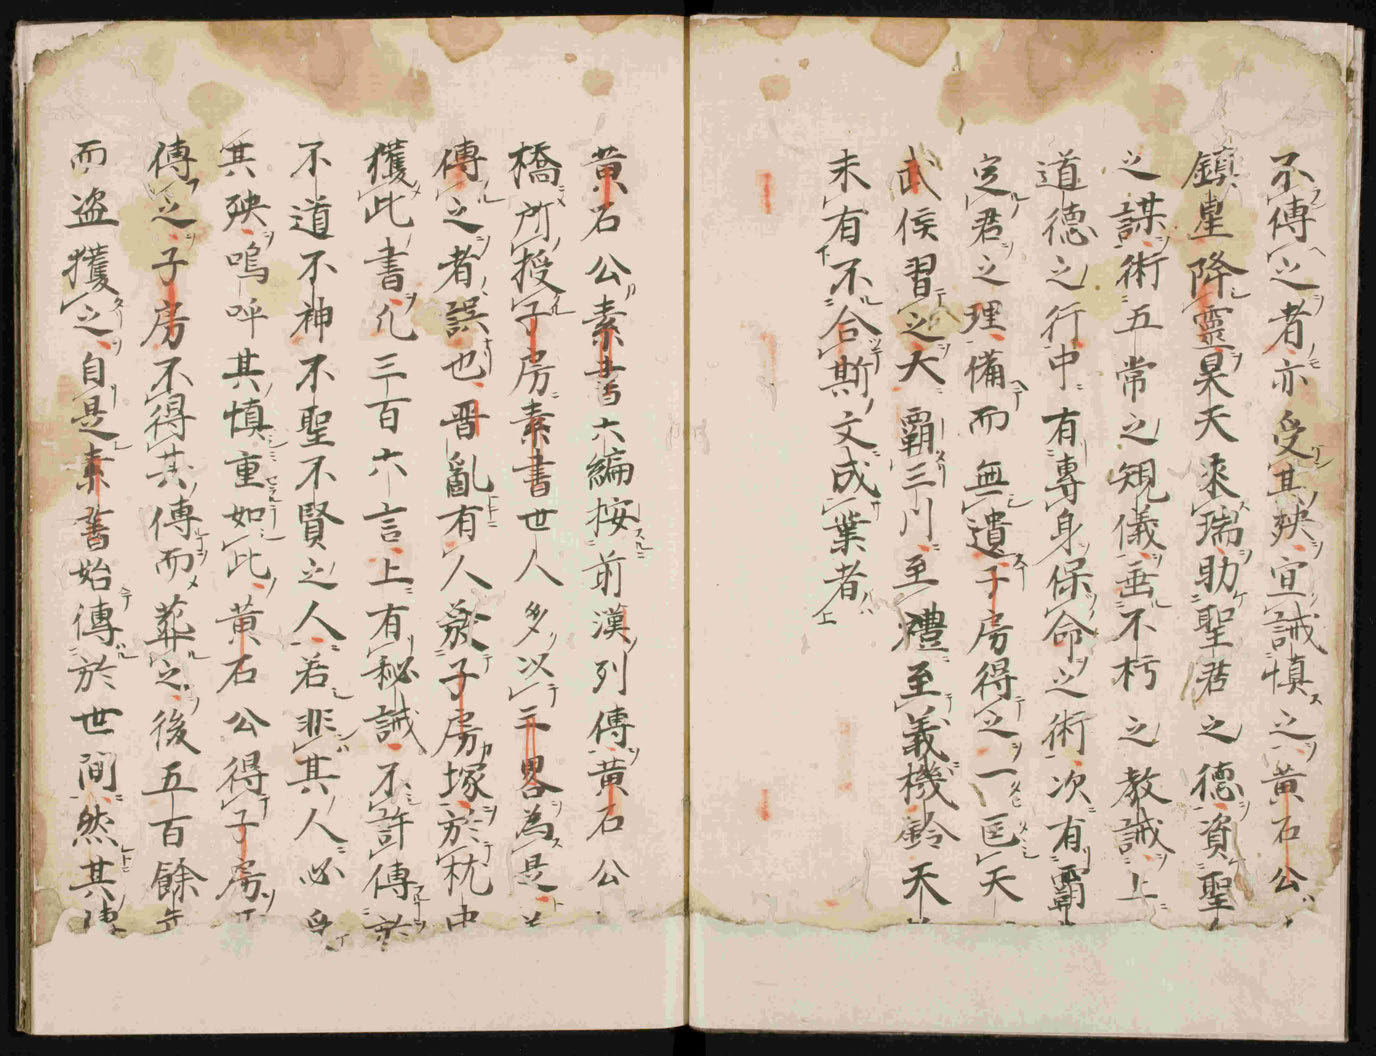 不傳之者亦受其殃宜誡慎之黄石公
鎮星降靈昊天來瑞助聖君之德資聖
之謀術五常之規儀垂不朽之教誡上
道德之行中有專身保命之術次有覇
定君之理備而無遺子房得之一匡天
武侯習之大覇三川至禮至義機鈐天
未有不合斯文成業者
黄石公素書六編按前漢列傳黄石公
橋所授子房素書世人多以三畧為是
傳之者誤也晋亂有人發子房塚於枕中
獲此書凡三百六言上有秘誡不許傳於
不道不神不聖不賢之人若非其人必受
其殃嗚呼其慎重如此黄石公得子房
傳之子房不得其傳而葬之後五百餘年
而盗獲之自是素書始傳於世間然其傳